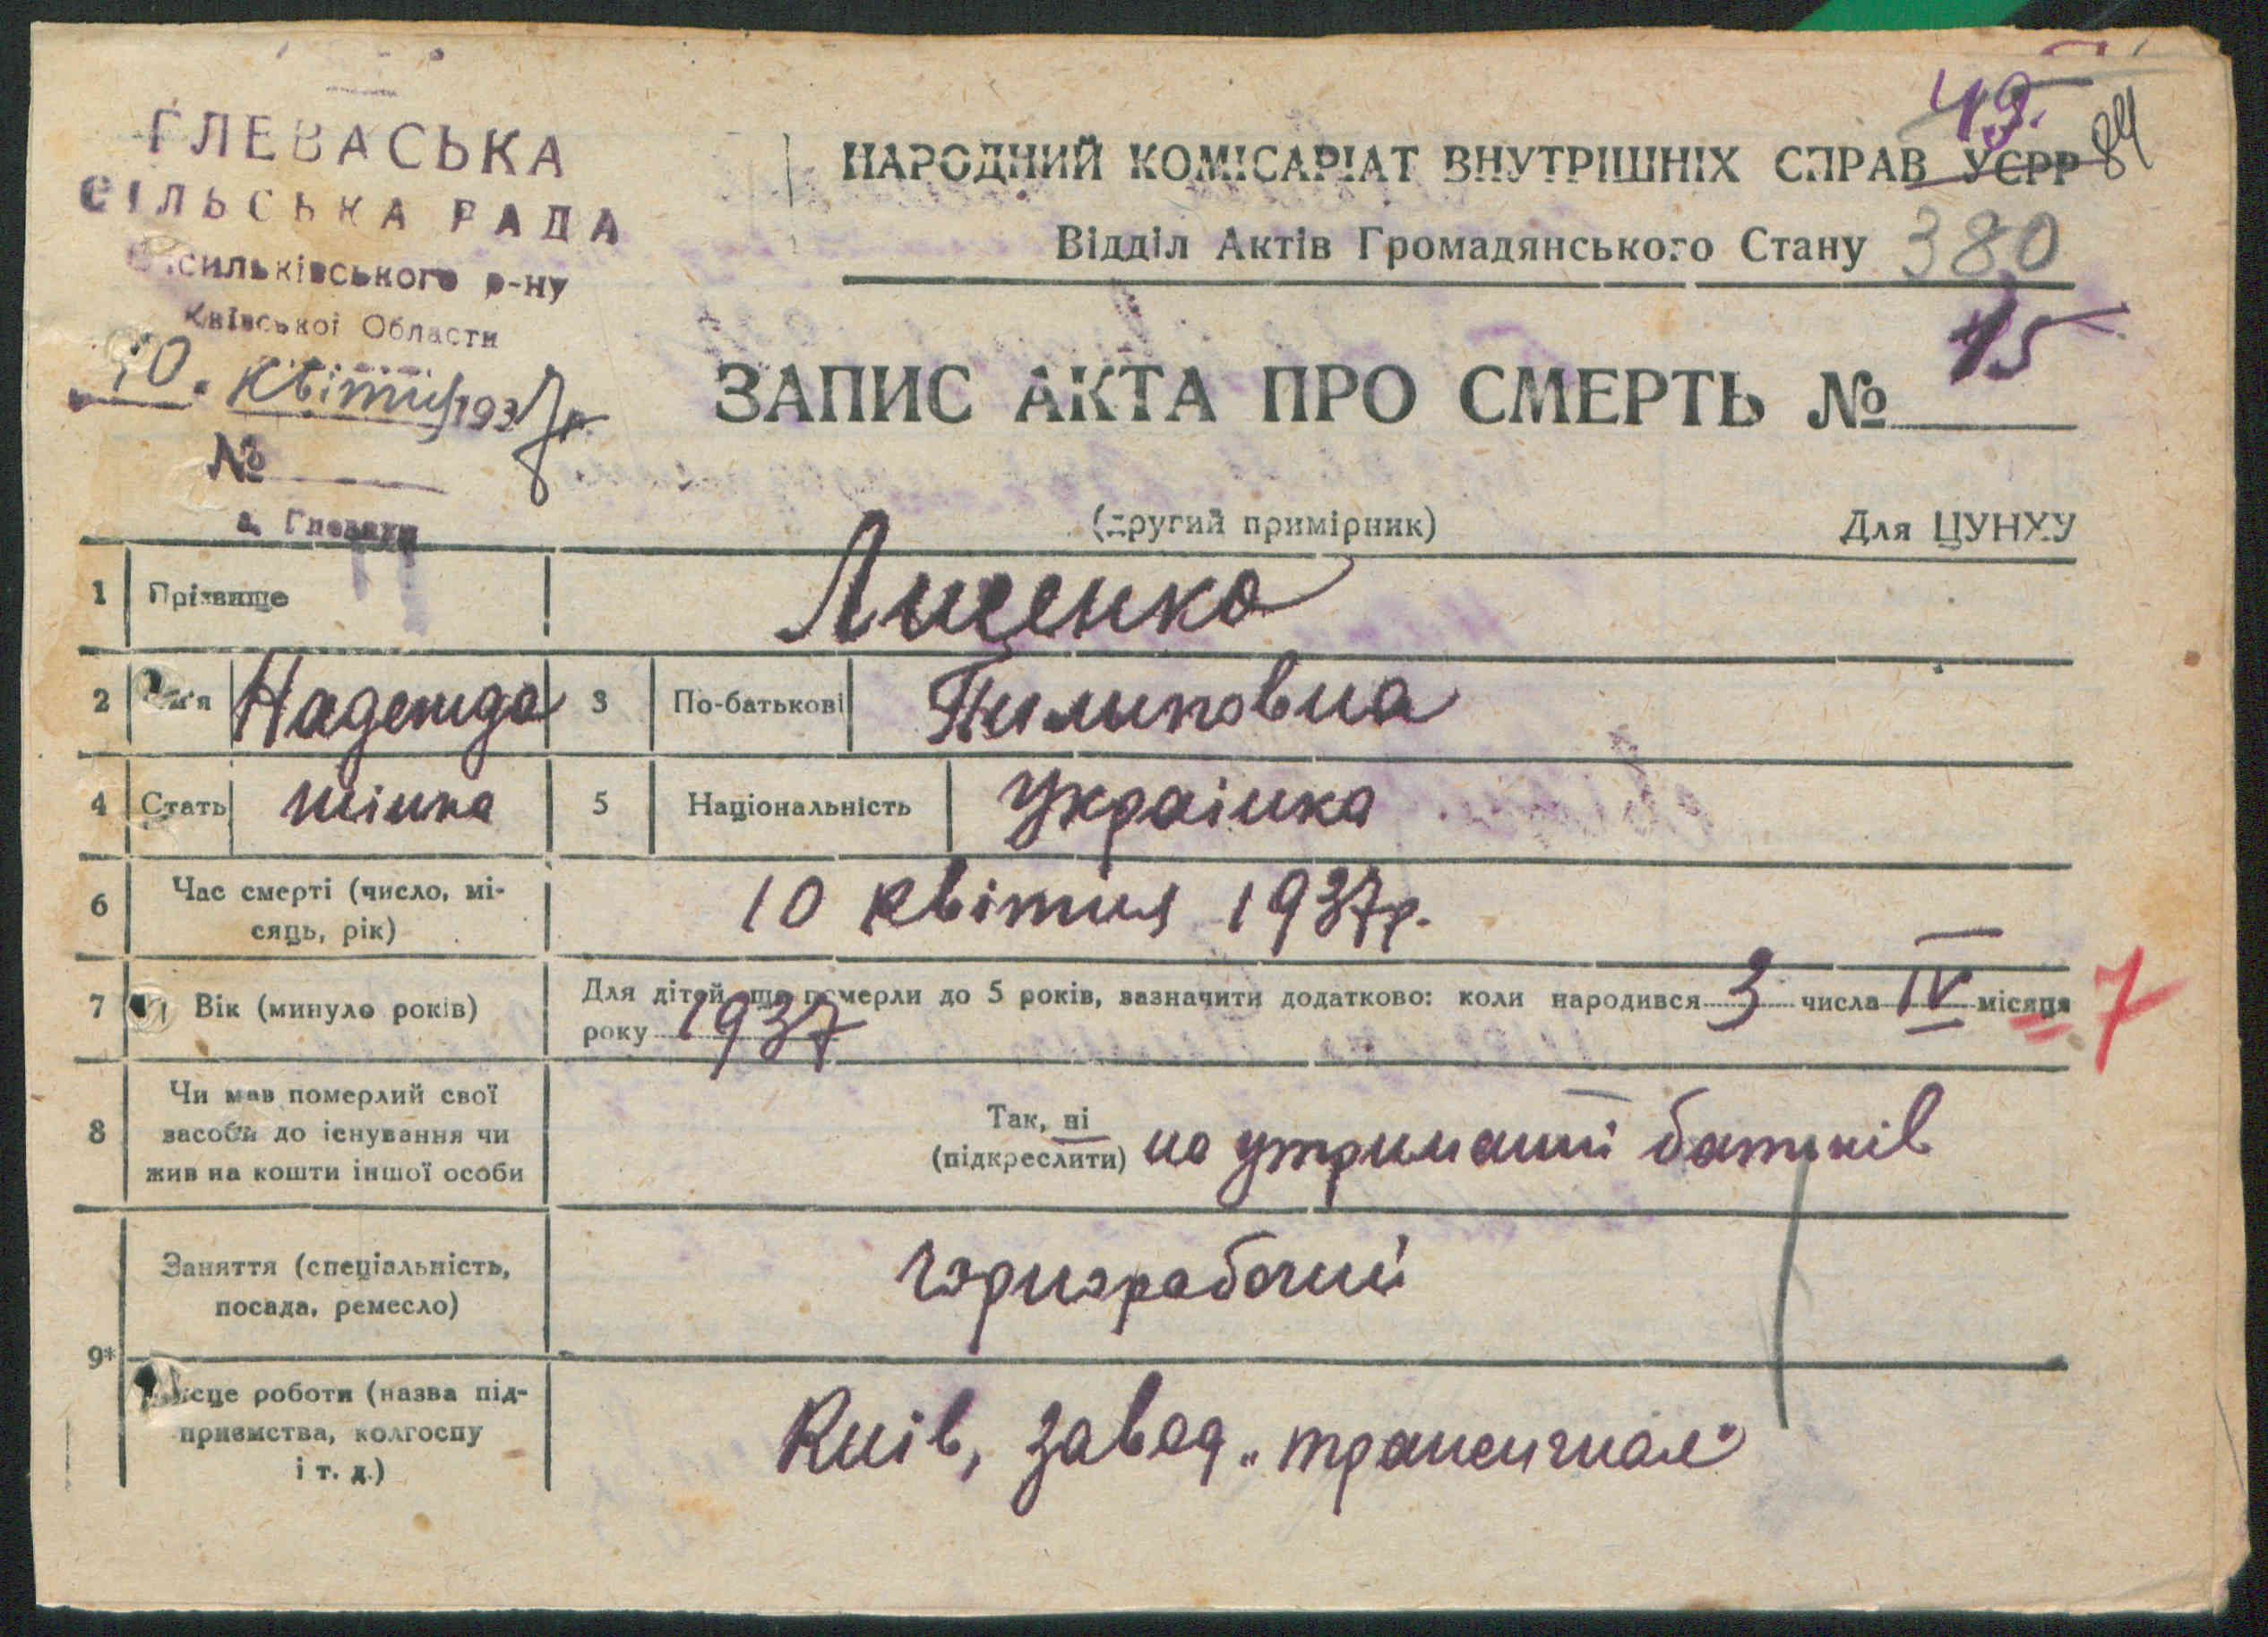 ГЛЕВАСЬКА
СІЛЬСЬКА РАДА
сильківського р-ну
Київської Области
10. квітня 1937 р.
№
с. Глеваха
49.
84
НАРОДНИЙ КОМІСАРІАТ ВНУТРІШНІХ СПРАВ УСРР
Відділ Актів Громадянського Стану 380
ЗАПИС АКТА ПРО СМЕРТЬ № 15
(другий примірник) Для ЦУНХУ
1 Прізвище Лиценко
2 Ім'я Надежда 3 По-батькові Пилиповна
4 Стать жінка 5 Національність Украінка
6 Час смерті (число, мі-
сяць, рік) 10 квітня 1937р.
7 Вік (минуло років) Для дітей, що померли до 5 років, зазначити додатково: коли народився 3 числа IV місяця 7
року 1937
8 Чи мав померлий свої
засоби до існування чи
жив на кошти іншої особи
Так, ні
(підкреслити) на утриманні батьків
Заняття (спеціальність,
посада, ремесло) чэрнэрабочий
9*
Місце роботи (назва під-
приємства, колгоспу
і т. д.)
Київ, завод „трансигнал"